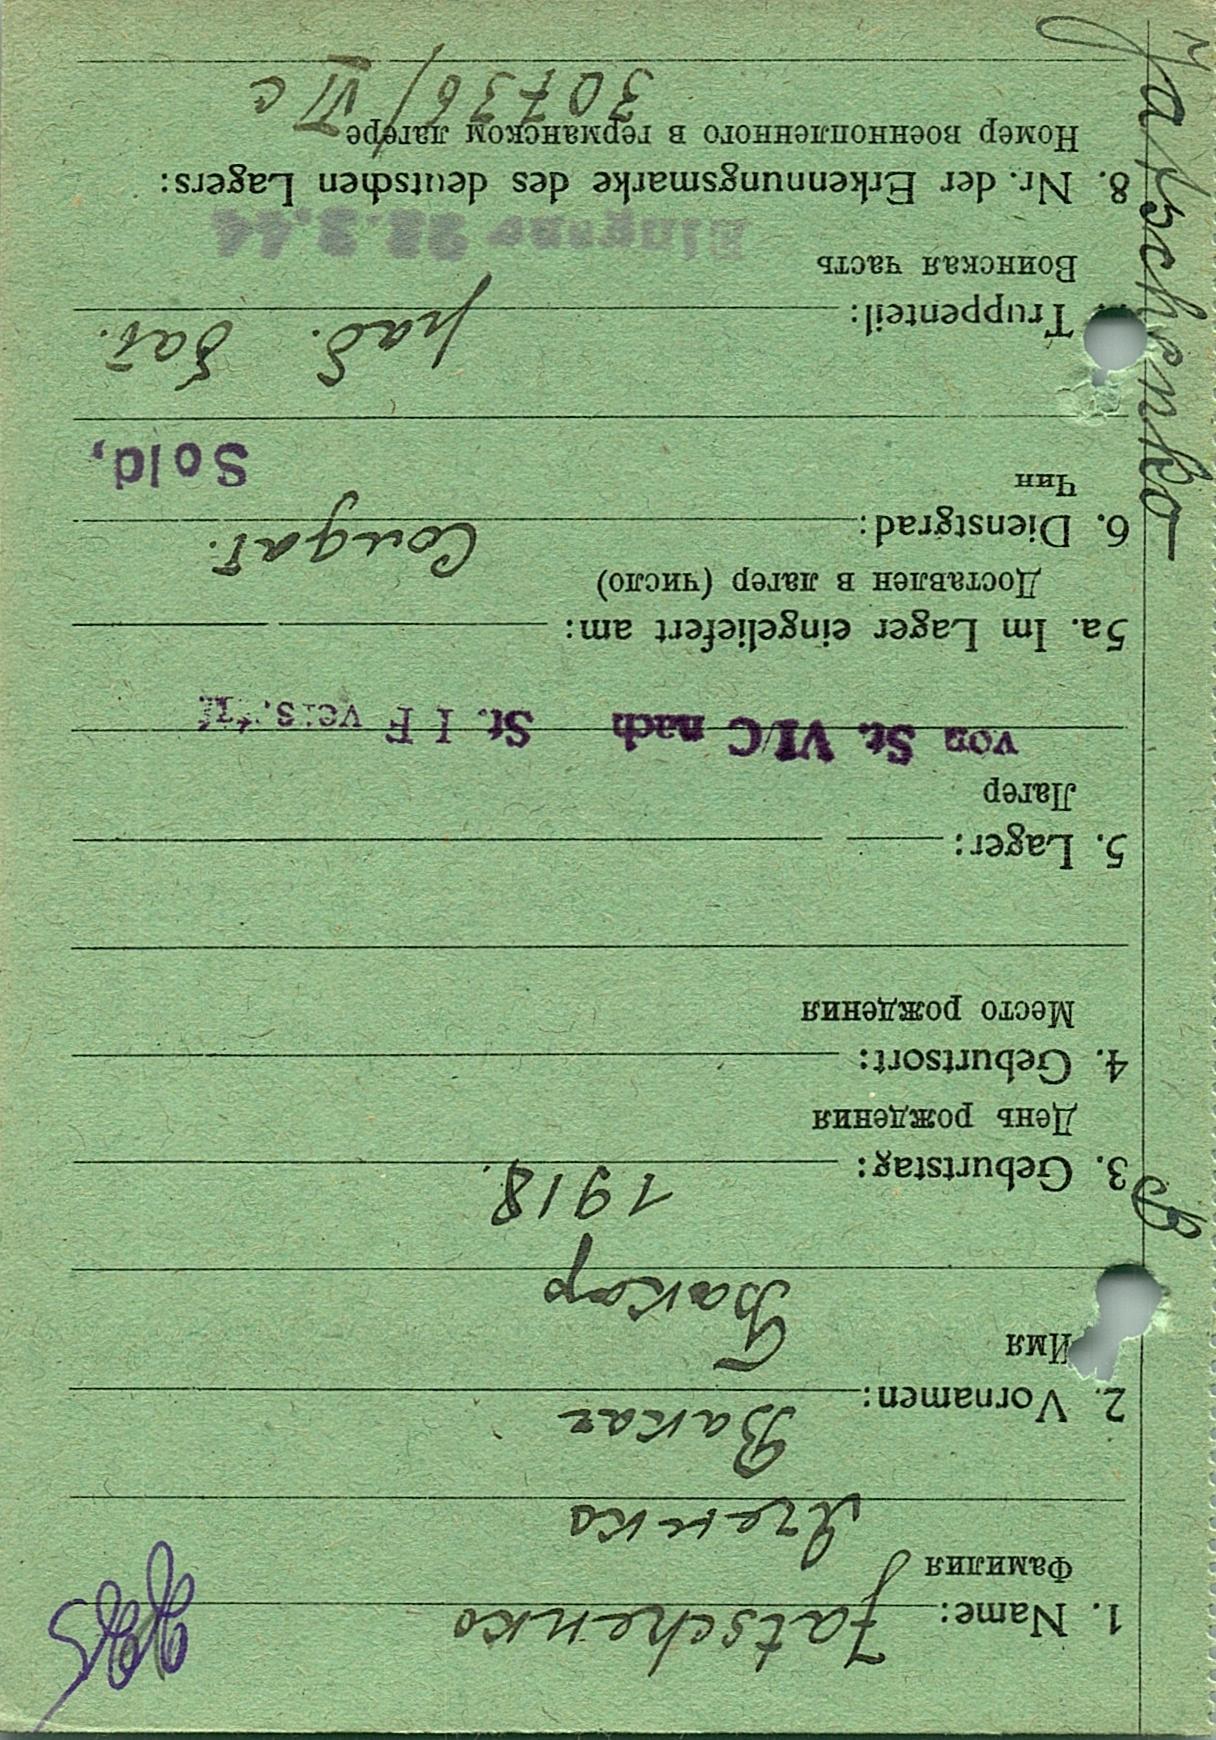 1. Name: Jatschenko
Фамилия
Яченко
2. Vornamen: Вакаг
Имя
Бакар
3. Geburtstag: 1918.
День рождения
4. Geburtsort:
Место рождения
5. Lager:
Лагер
von St. VI/C nach St. I F vers.
5a. Im Lager eingeliefert am:
Доставлен в лагер (число)
6. Dienstgrad: Солдат.
Чин
Sold,
Truppenteil: раб. бат.
Воинская часть
Eingang 22.3.44
8. Nr. der Erkennungsmarke des deutschen Lagers:
Номер военнопленного в германском лагере
30736/VI c
Jatschenko